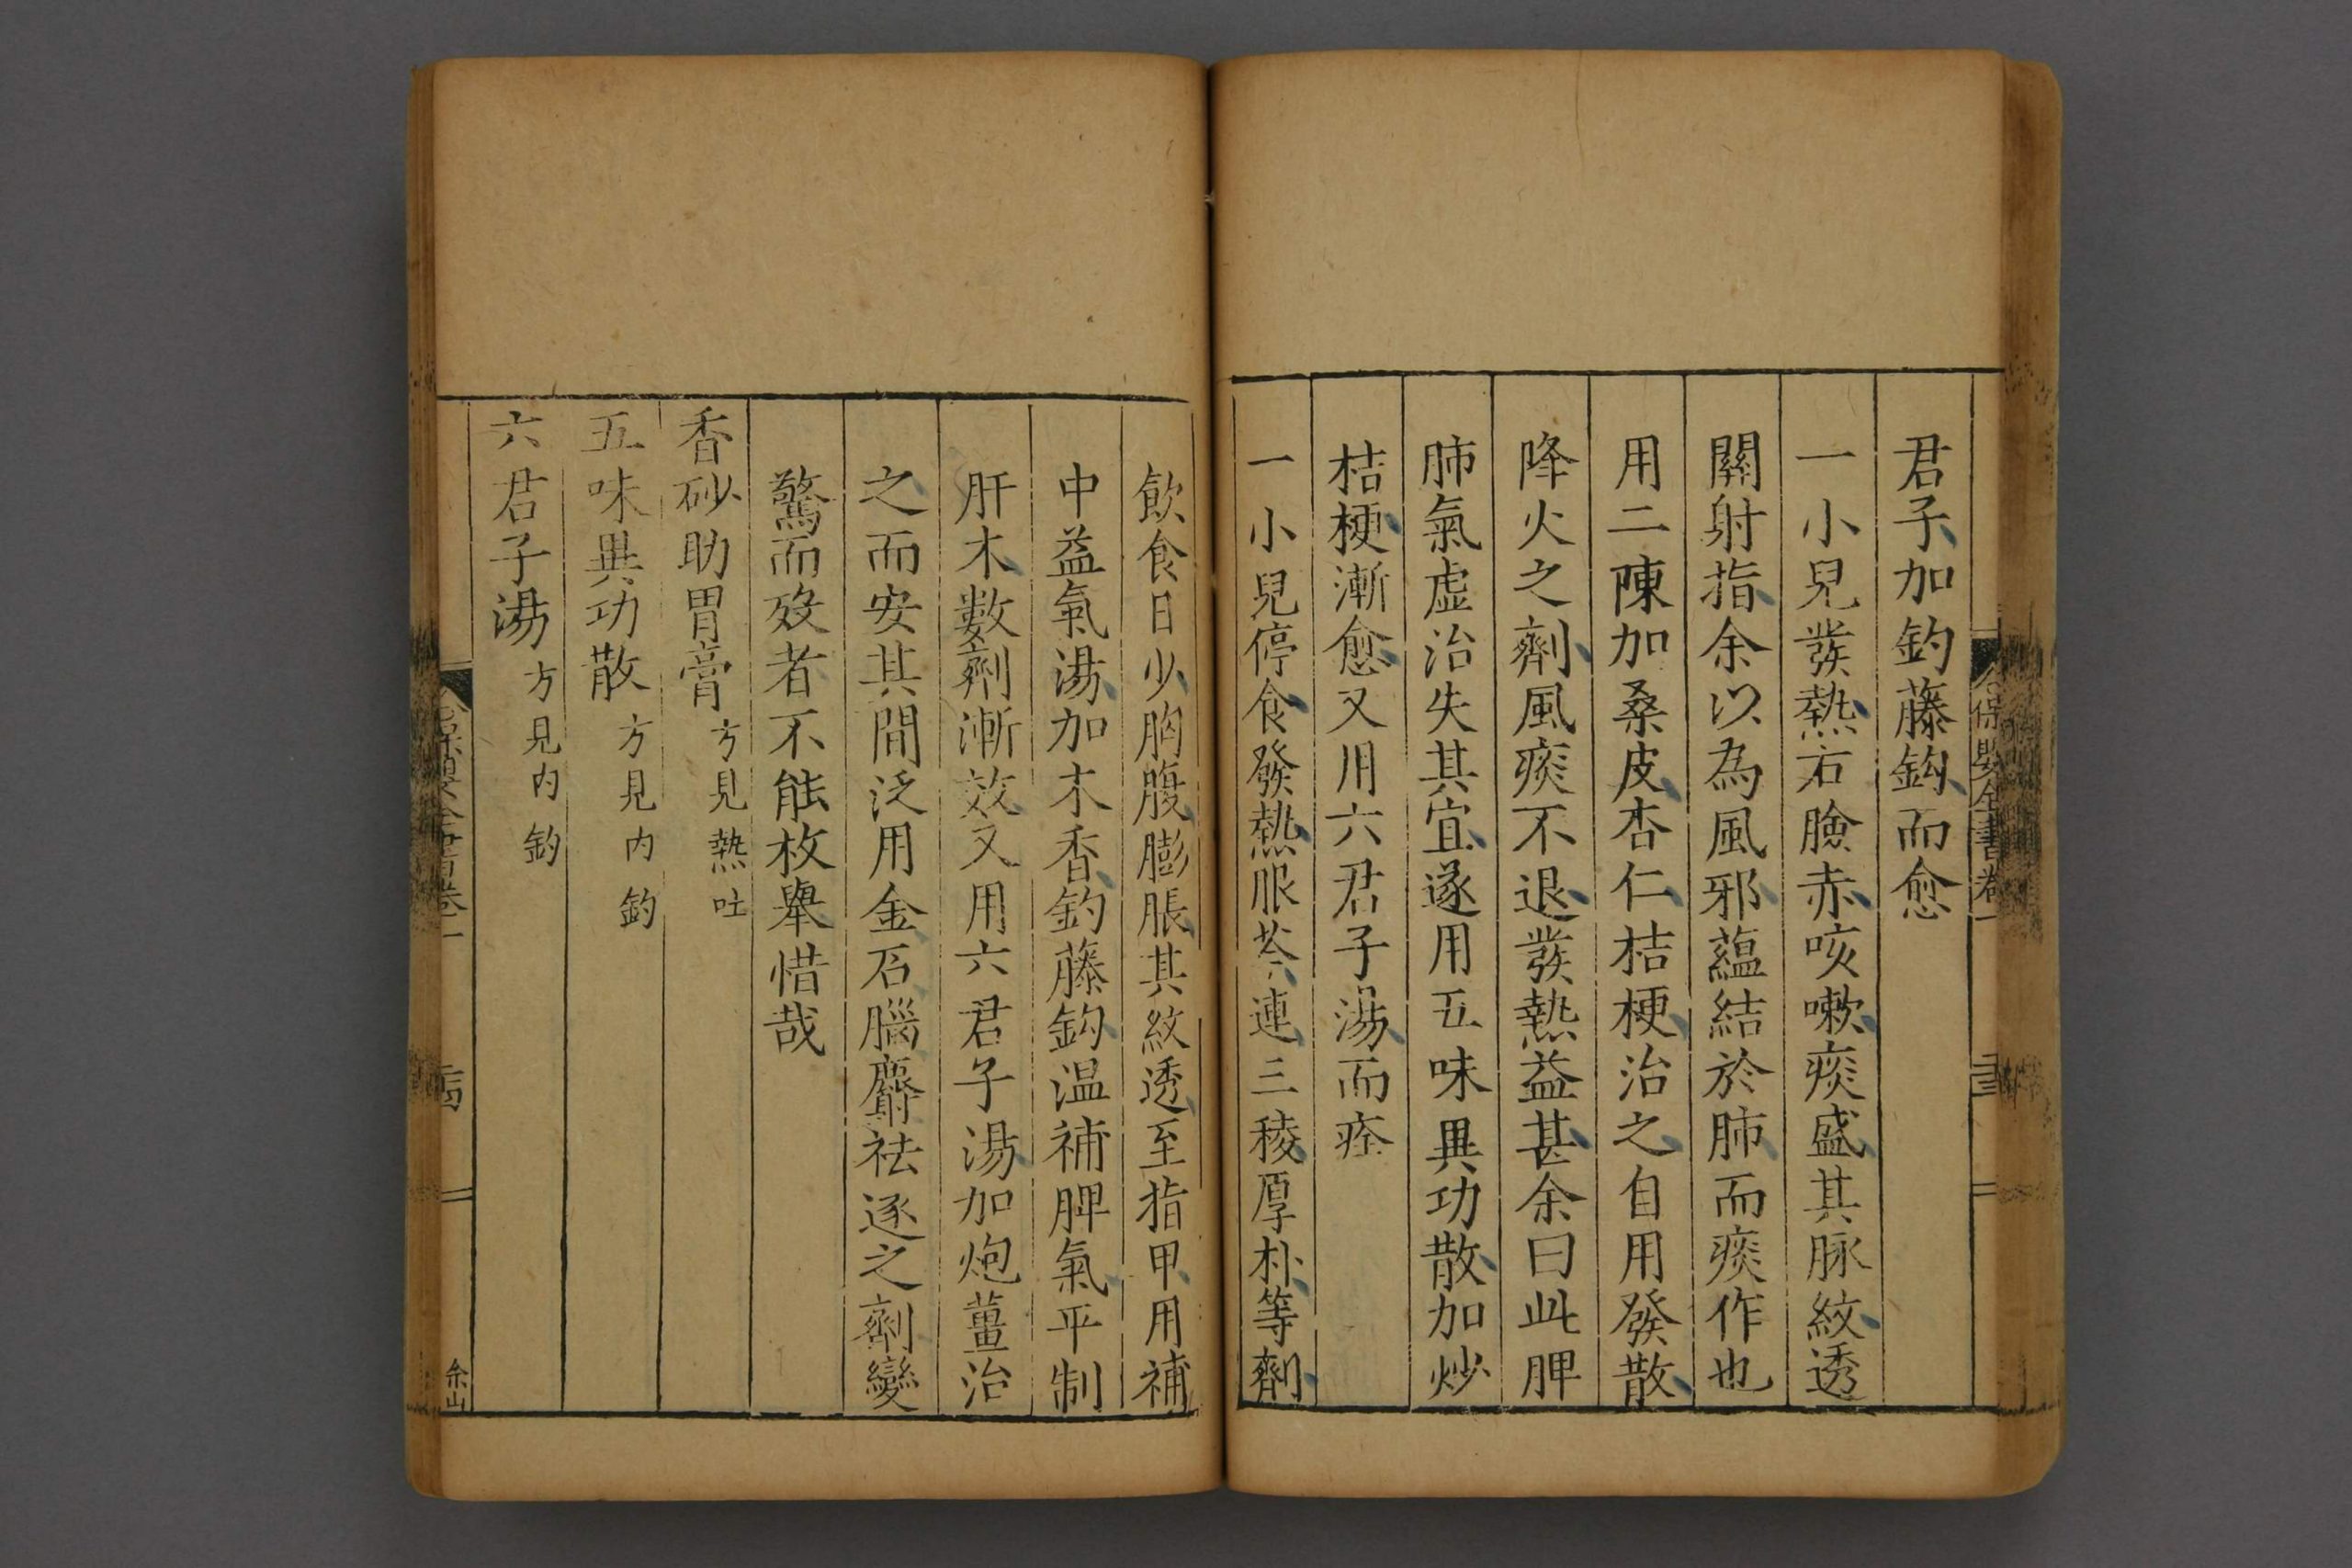 君子加鈎藤鈎而愈
一小兒發熱右臉赤咳嗽痰盛其脉紋透
關射指余以為風邪蘊結於肺而痰作也
用二陳加桑皮杏仁桔梗治之自用發散
降火之劑風痰不退發熱益甚余曰此脾
肺氣虛治失其宜遂用五味異功散加炒
桔梗漸愈又用六君子湯而痊
一小兒停食發熱服芩連三稜厚朴等劑
飲食日少胸腹膨脹其紋透至指甲用補
中益氣湯加木香鈎藤鈎温補脾氣平制
肝木數劑漸效又用六君子湯加炮薑治
之而安其間泛用金石腦麝祛逐之劑變
驚而歿者不能枚舉惜哉
香砂助胃膏方見熱吐
五味異功散方見内釣
六君子湯方見内釣
保嬰全書卷一
余山